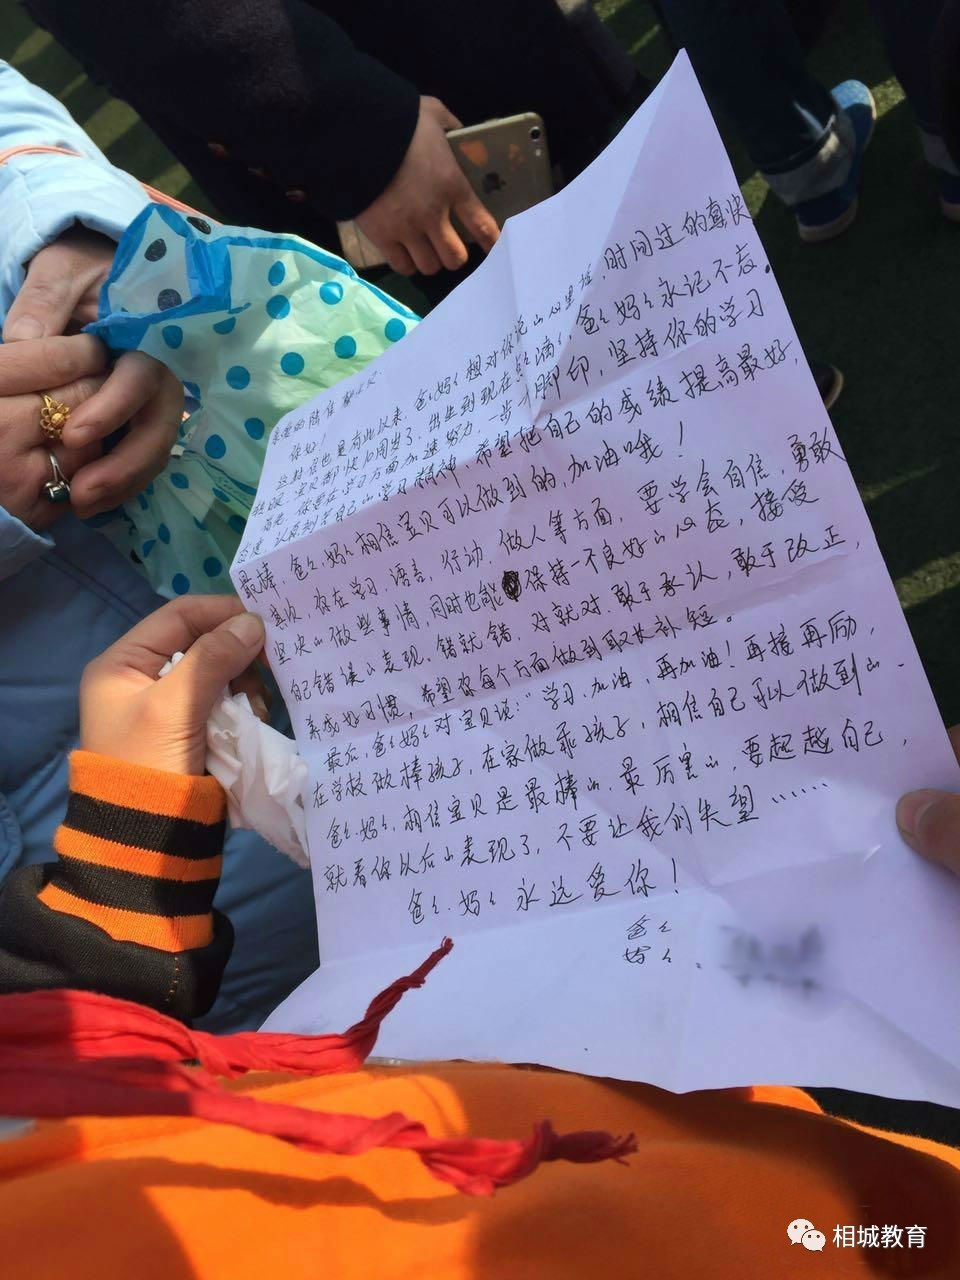 亲爱的陆佳
你好！
这封信也是有此以来，爸爸妈妈想对你说的心里话，时间过的真快
转眼，宝贝都快10周岁了，出生到现在点点滴滴，爸爸妈妈永记不忘。
首先，你要在学习方面加速努力，一步一脚印，坚持你的学习
态度，认真刻苦自己的学习精神，希望把自己的成绩提高最好，
最棒，爸爸、妈妈相信宝贝可以做到的，加油哦！
其次，你在学习，语言，行动，做人等方面，要学会自信，勇敢
坚决的做些事情，同时也能保持一不良好的心态，接受
自己错误的表现，错就错，对就对，敢于承认，敢于改正，
养成好习惯，希望你每个方面做到取长补短。
最后，爸爸妈妈对宝贝说：“学习，加油，再加油！再接再励，
在学校做棒孩子，在家做乖孩子，相信自己可以做到的。
爸爸、妈妈，相信宝贝是最棒的，最厉害的，要起越自己，
就看你以后的表现了，不要让我们失望……
爸爸、妈妈永远爱你！
爸爸
妈妈
相城教育